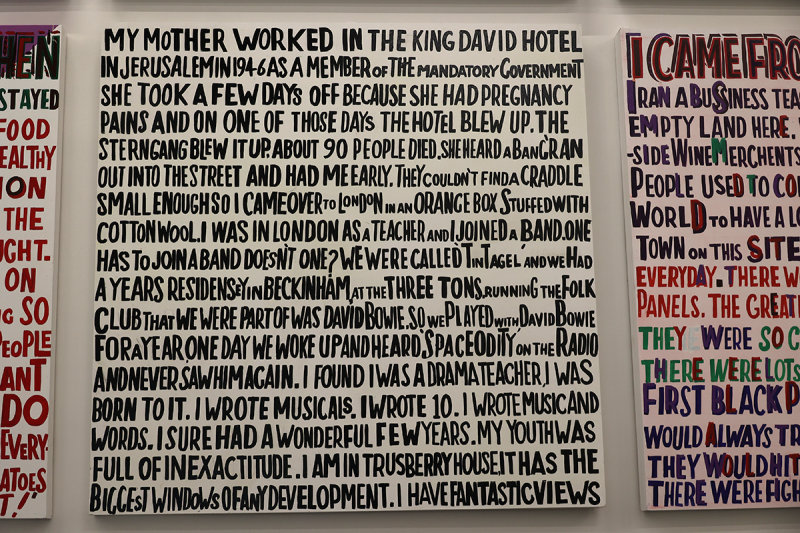 HEN
STAYED
FOOD
EALTHY
ION
THE
UGHT.
ON
NG SO
PEOPLE
ANT
DO
EVERY-
ATOES
T!"
MY MOTHER WORKED IN THE KING DAVID HOTEL
IN JERUSALEM IN 1946 AS A MEMBER OF THE MANDATORY GOVERNMENT
SHE TOOK A FEW DAYS OFF BECAUSE SHE HAD PREGNANCY
PAINS AND ON ONE OF THOSE DAYS THE HOTEL BLEW UP. THE
STERN GANG BLEW IT UP. ABOUT 90 PEOPLE DIED. SHE HEARD A BANG RAN
OUT INTO THE STREET AND HAD ME EARLY. THEY COULDN'T FIND A CRADDLE
SMALL ENOUGH SO I CAME OVER TO LONDON IN AN ORANGE BOX STUFFED WITH
COTTON WOOL. I WAS IN LONDON AS A TEACHER AND I JOINED A BAND. ONE
HAS TO JOIN A BAND DOESN'T ONE? WE WERE CALLED 'TINTAGEL' AND WE HAD
A YEARS RESIDENSEY IN BECKINHAM, AT THE THREE TONS, RUNNING THE FOLK
CLUB THAT WE WERE PART OF WAS DAVID BOWIE. SO, WE PLAYED WITH DAVID BOWIE
FOR A YEAR ONE DAY WE WOKE UP AND HEARD 'SPACE ODITY' ON THE RADIO
AND NEVER SAW HIM AGAIN. I FOUND I WAS A DRAMA TEACHER, I WAS
BORN TO IT. I WROTE MUSICALS. I WROTE 10. I WROTE MUSIC AND
WORDS. I SURE HAD A WONDERFUL FEW YEARS. MY YOUTH WAS
FULL OF INEXACTITUDE. I AM IN TRUSBERRY HOUSE, IT HAS THE
BIGGEST WINDOWS OF ANY DEVELOPMENT. I HAVE FANTASTIC VIEWS
I CAME FRO
IRAN A BUSINESS TEA
EMPTY LAND HERE.
-SIDE WINE MERCHENTS
PEOPLE USED TO CO
WORLD TO HAVE A LO
TOWN ON THIS SITE
EVERYDAY. THERE W
PANELS. THE GREAT
THEY WERE SO C
THERE WERE LOTS
FIRST BLACK P
WOULD ALWAYS TR
THEY WOULD HIT
THERE WERE FIGH